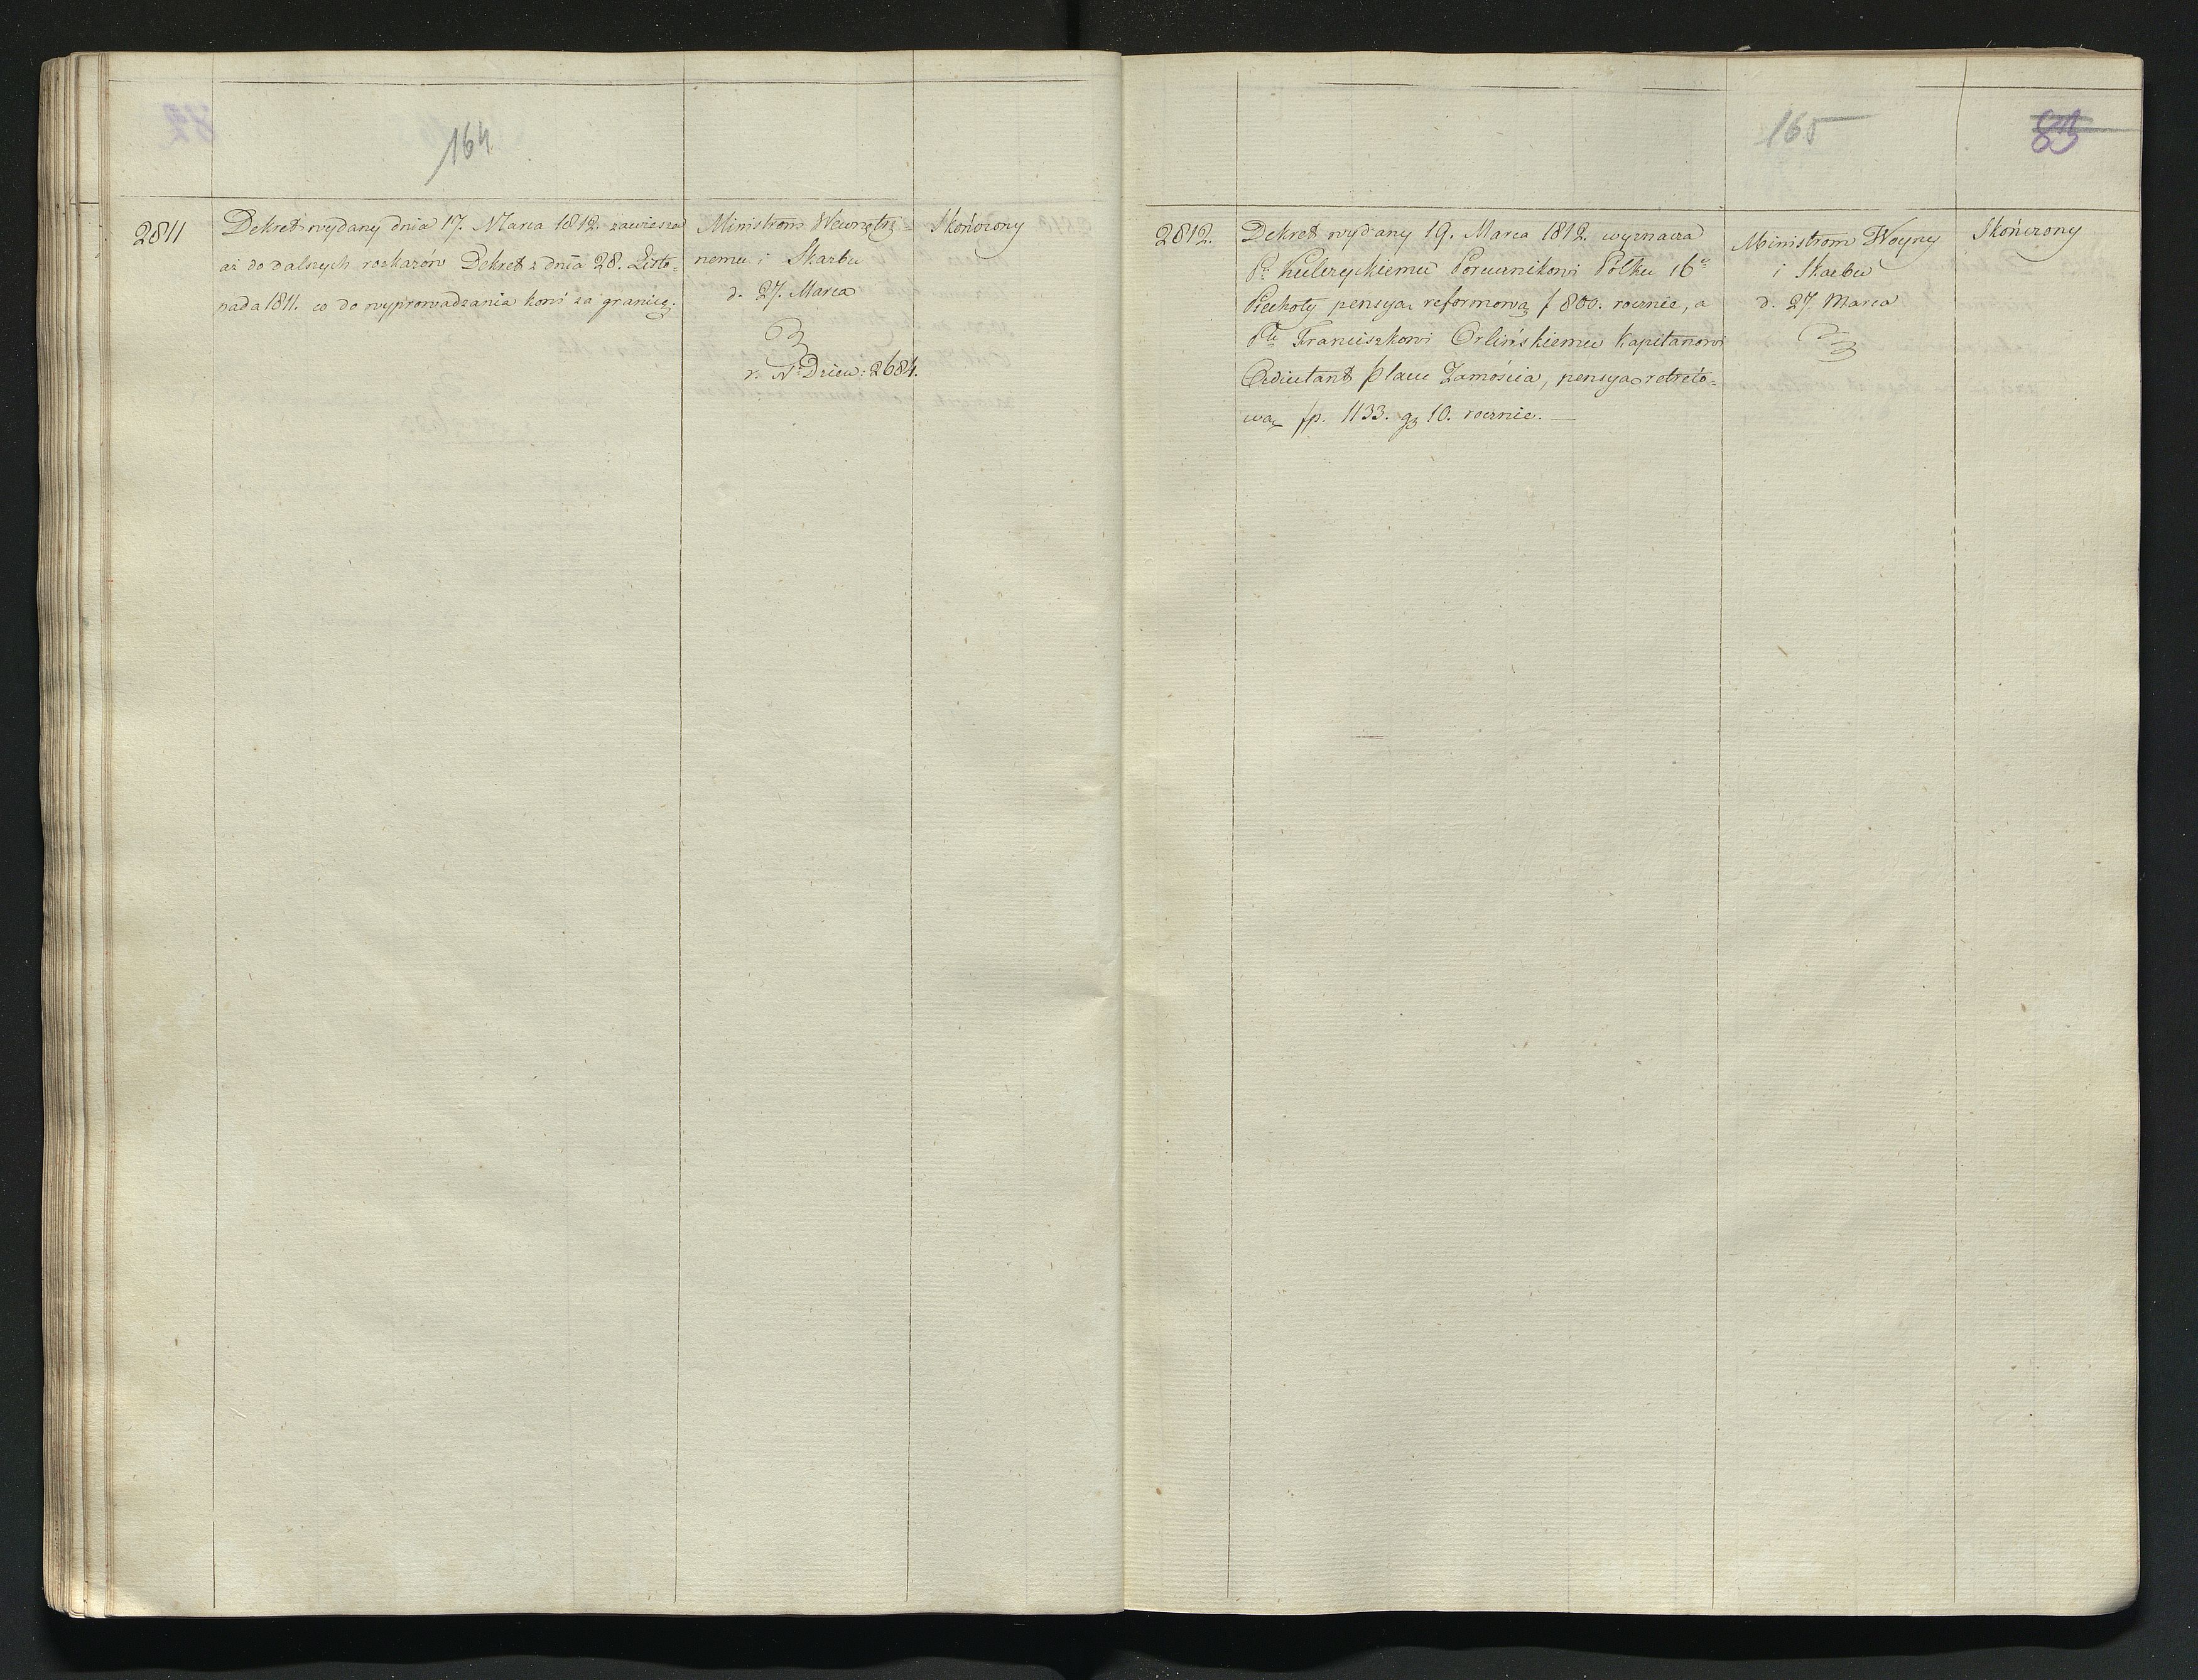 164
2811
Dekret wydany dnia 17. Marca 1812. zawiesza
aż do dalszych rozkazów Dekret z dnia 28. Listo=
pada 1811. co do wyprowadzania koni za granicę.
Ministrom Wewnętrz=
nemu i Skarbu
d. 27. Marca
v. N° Dzien: 2684.
Skończony
165
83
2812.
Dekret wydany 19. Marca 1812. wyznacza
Pu Kulczyckiemu Porucznikowi Półku 16°
Piechoty pensyą reformową f 800. rocznie, a
Pu Franciszkowi Orlińskiemu Kapitanowi
Adiutant placu Zamościa, pensyą retreto=
wą fp. 1133. g 10. rocznie. —
Ministrom Woyny
i Skarbu
d. 27. Marca
Skończony